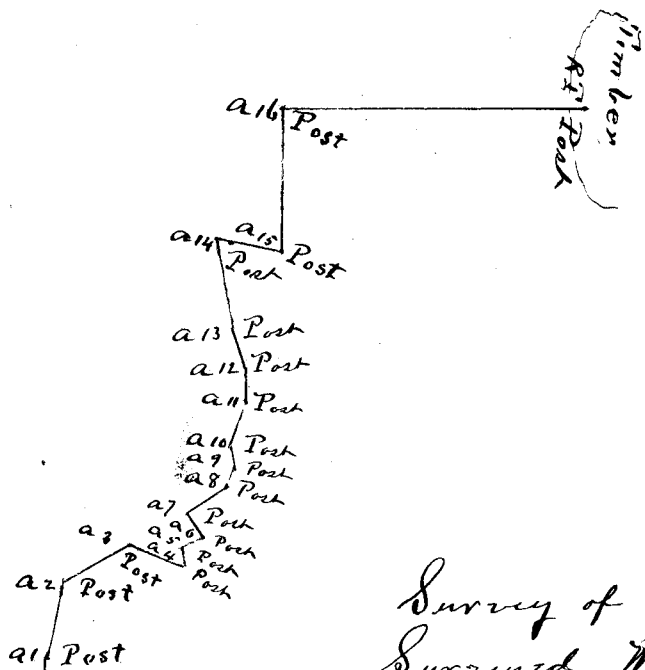 Timber
RI Post
a16 Post
a14 Post a15 Post
a13 Post
a12 Post
a11 Post
a10 Post
a9 Post
a8 Post
a7 Post
a6 Post
a5 Post
a4 Post
a3 Post
a2 Post
a1 Post
Survey of
Surveyed